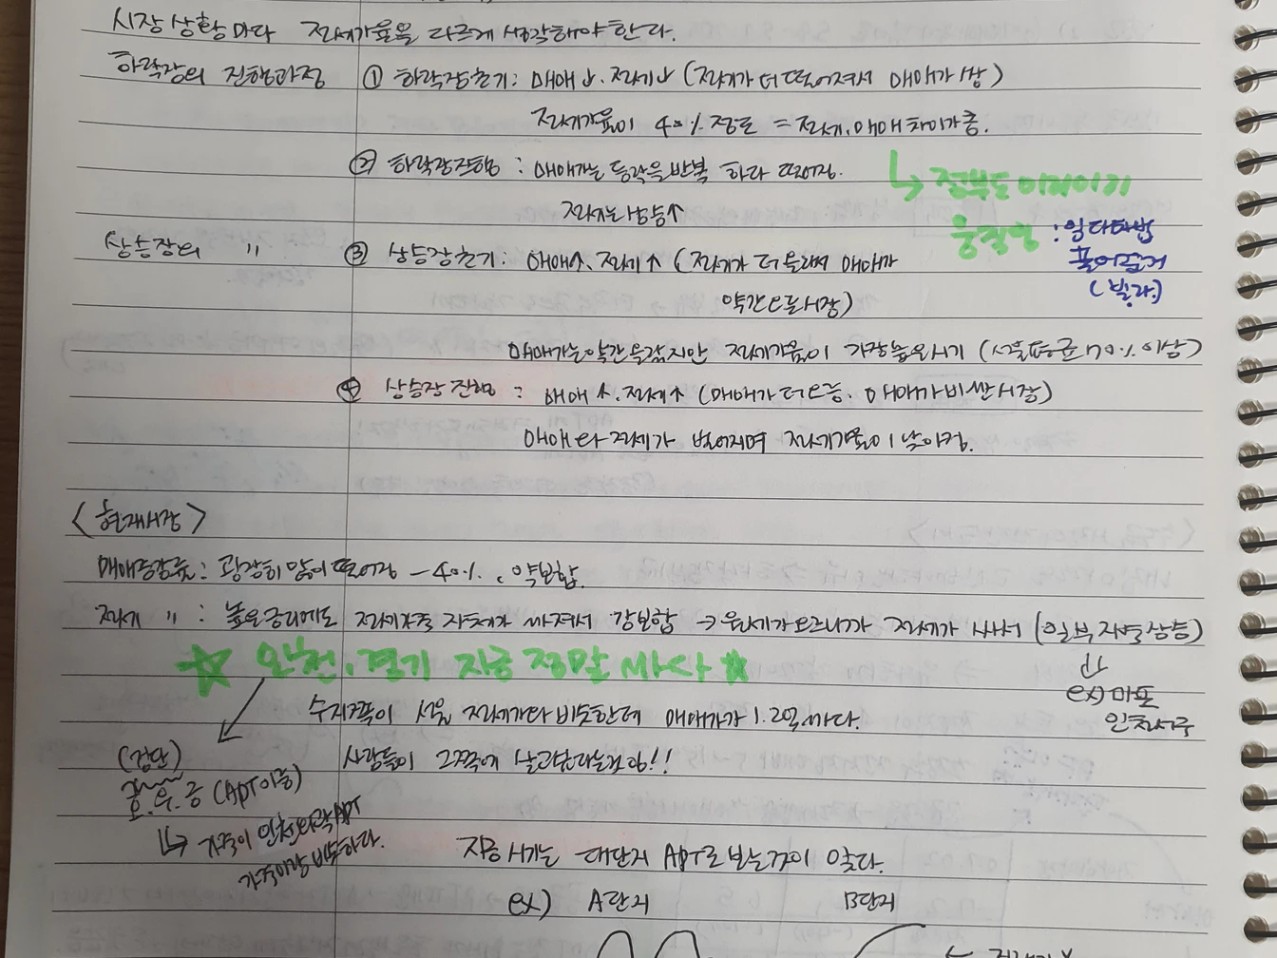 시장 상황마다 전세가율을 다르게 생각해야 한다.
하락장의 진행과정 ① 하락장초기: 매매↓. 전세↓ (전세가 더 떨어져서 매매가 쌈)
전세가율이 40% 정도 = 전세.매매 차이가 큼.
② 하락장진행 : 매매가는 등락을 반복 하다 떨어짐.
↳ 전부도 미리이기
전세는 상승↑
상승장의 〃 ③ 상승장초기: 매매↑. 전세↑ (전세가 더 올라서 매매가
약간 오른시장)
: 일타타방
(빌라)
매매가는 약간 올랐지만 전세가율이 가장 높은시기 (서울평균 70% 이상)
④ 상승장 진행 : 매매↑. 전세↑ (매매가 더 오름. 매매가 비싼시장)
매매와 전세가 벌어지며 전세가율이 낮아짐.
<현재시장>
매매증감률: 굉장히 많이 떨어짐 -40%. 약보합.
전세 〃 : 높은금리에도 전세가격 자체가 싸져서 강보합 → 월세가 오르니까 전세가 싸서 (일부 지블상승)
☆ 인천.경기 지금 정말 싸다 ☆
ex) 마포
인천서구
수지쪽이 서울 전세가랑 비슷한데 매매가가 1.2억 싸다.
사람들이 그쪽에 살고싶다는것임!!
(검단)
호.우.금 (APT이름)
↳ 가격이 인천 타락APT
가격이랑 비슷하다.
지금 시기는 대단지 APT로 보는것이 맞다.
ex) A단지 B단지